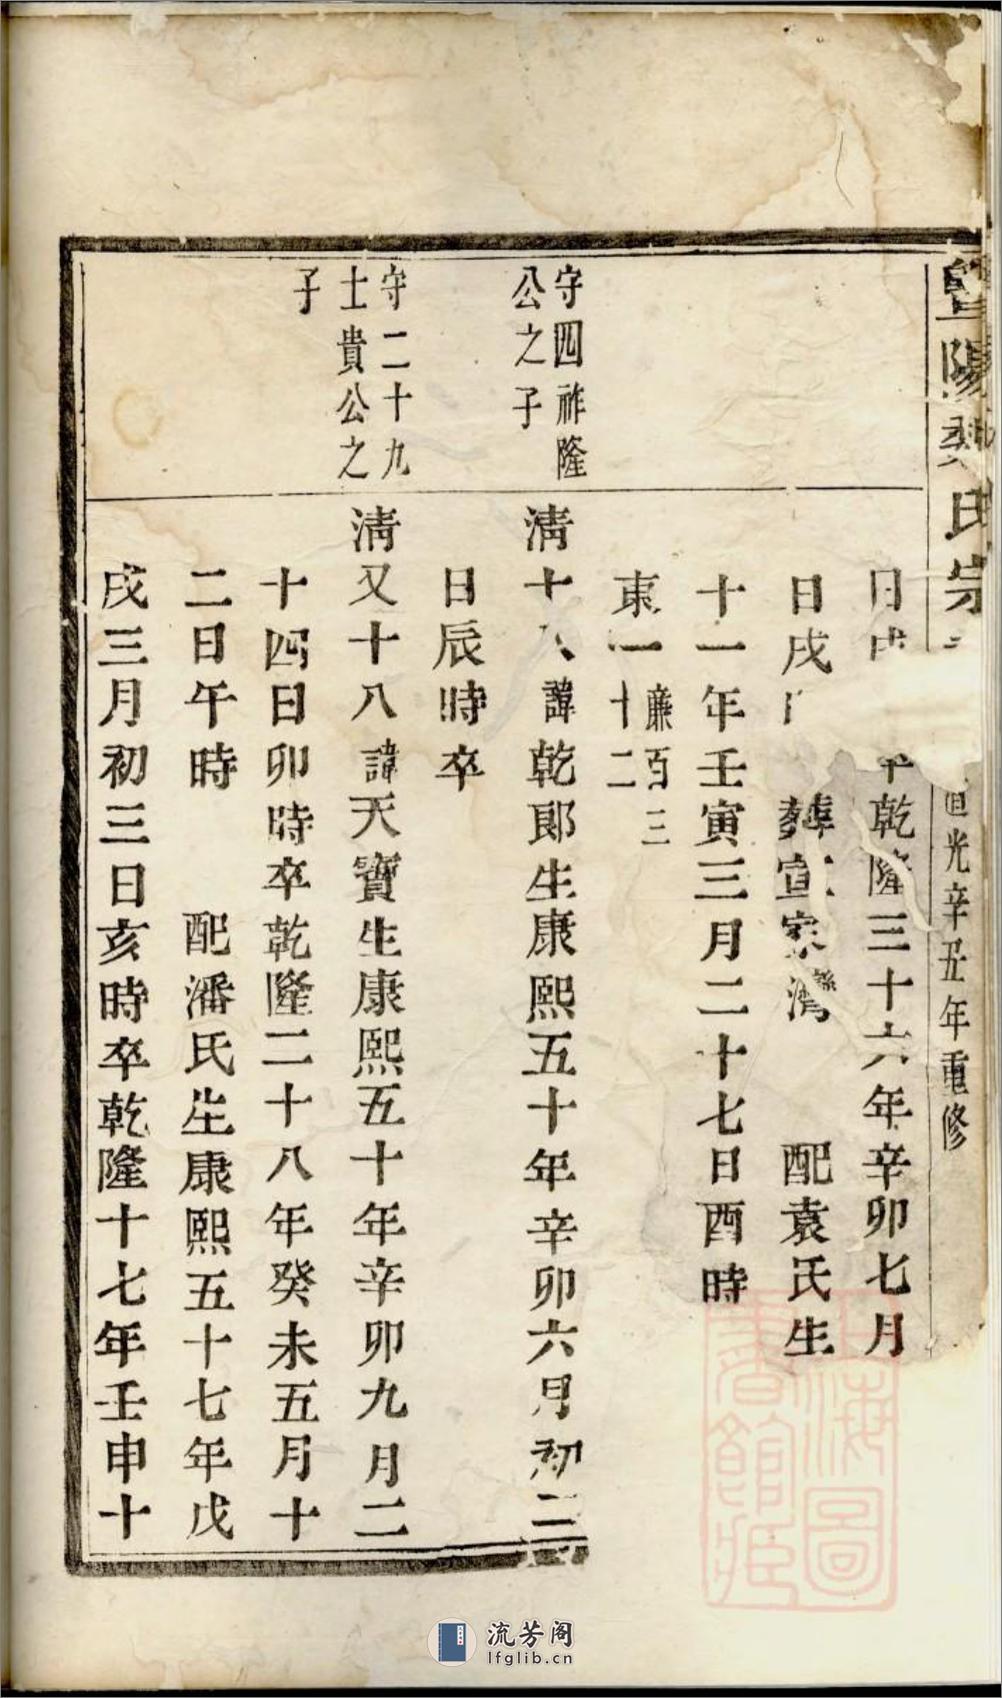 暨陽
氏宗
道光辛丑年重修
乾隆三十六年辛卯七月
日戌
葬宣家灣
配袁氏生
十一年壬寅三月二十七日酉時
東一
廉百三
十二
守四祚隆
公之子
清十八諱乾郞生康熙五十年辛卯六月初二
日辰時卒
守二十九
士貴公之
子
清又十八諱天寶生康熙五十年辛卯九月二
十四日卯時卒乾隆二十八年癸未五月十
二日午時
配潘氏生康熙五十七年戊
戌三月初三日亥時卒乾隆十七年壬申十
上海圖
書館藏
流芳阁
lfglib.cn